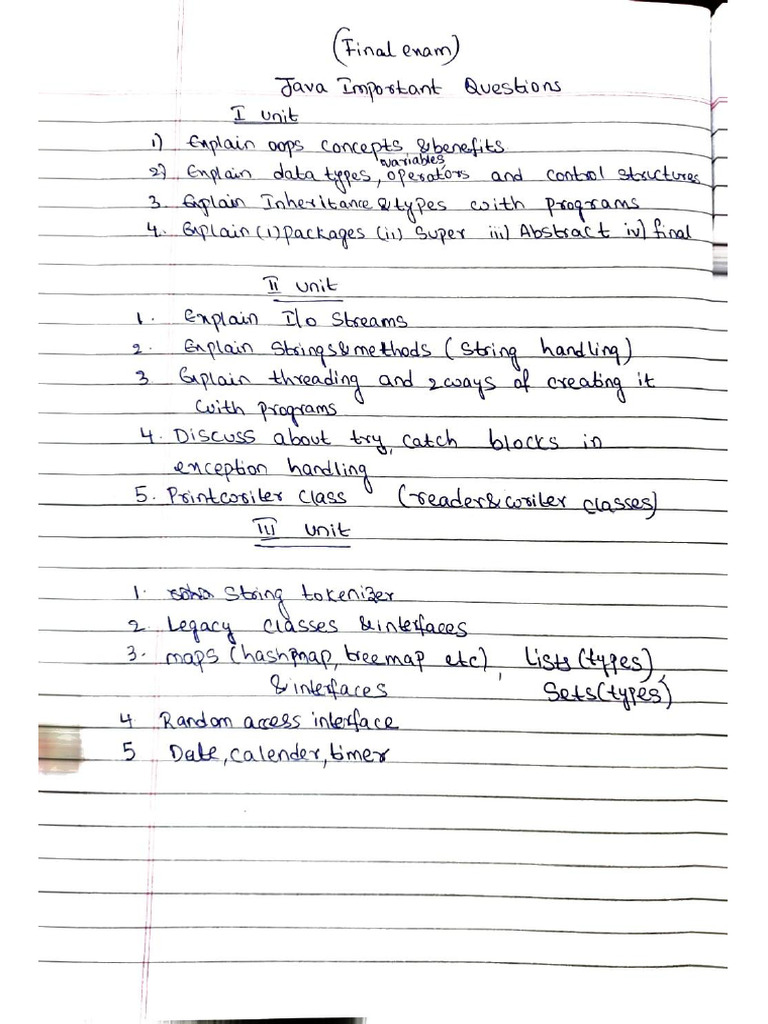 (Final exam)
Java Important Questions
I unit
1) Explain oops concepts & benefits
2) Explain data types, variables, operators and control structures
3. Explain Inheritance & types with programs
4. Explain (i) packages (ii) Super iii) Abstract iv) final
II unit
1. Explain I/o Streams
2. Explain Strings & methods (String handling)
3 Explain threading and 2 ways of creating it
with programs
4. Discuss about try, catch blocks in
exception handling
5. Printwriter class (reader & writer classes)
III unit
1. String tokenizer
2. Legacy classes & interfaces
3. maps (hashmap, treemap etc), Lists (types),
& interfaces Sets (types)
4 Random access interface
5 Date, calender, timer